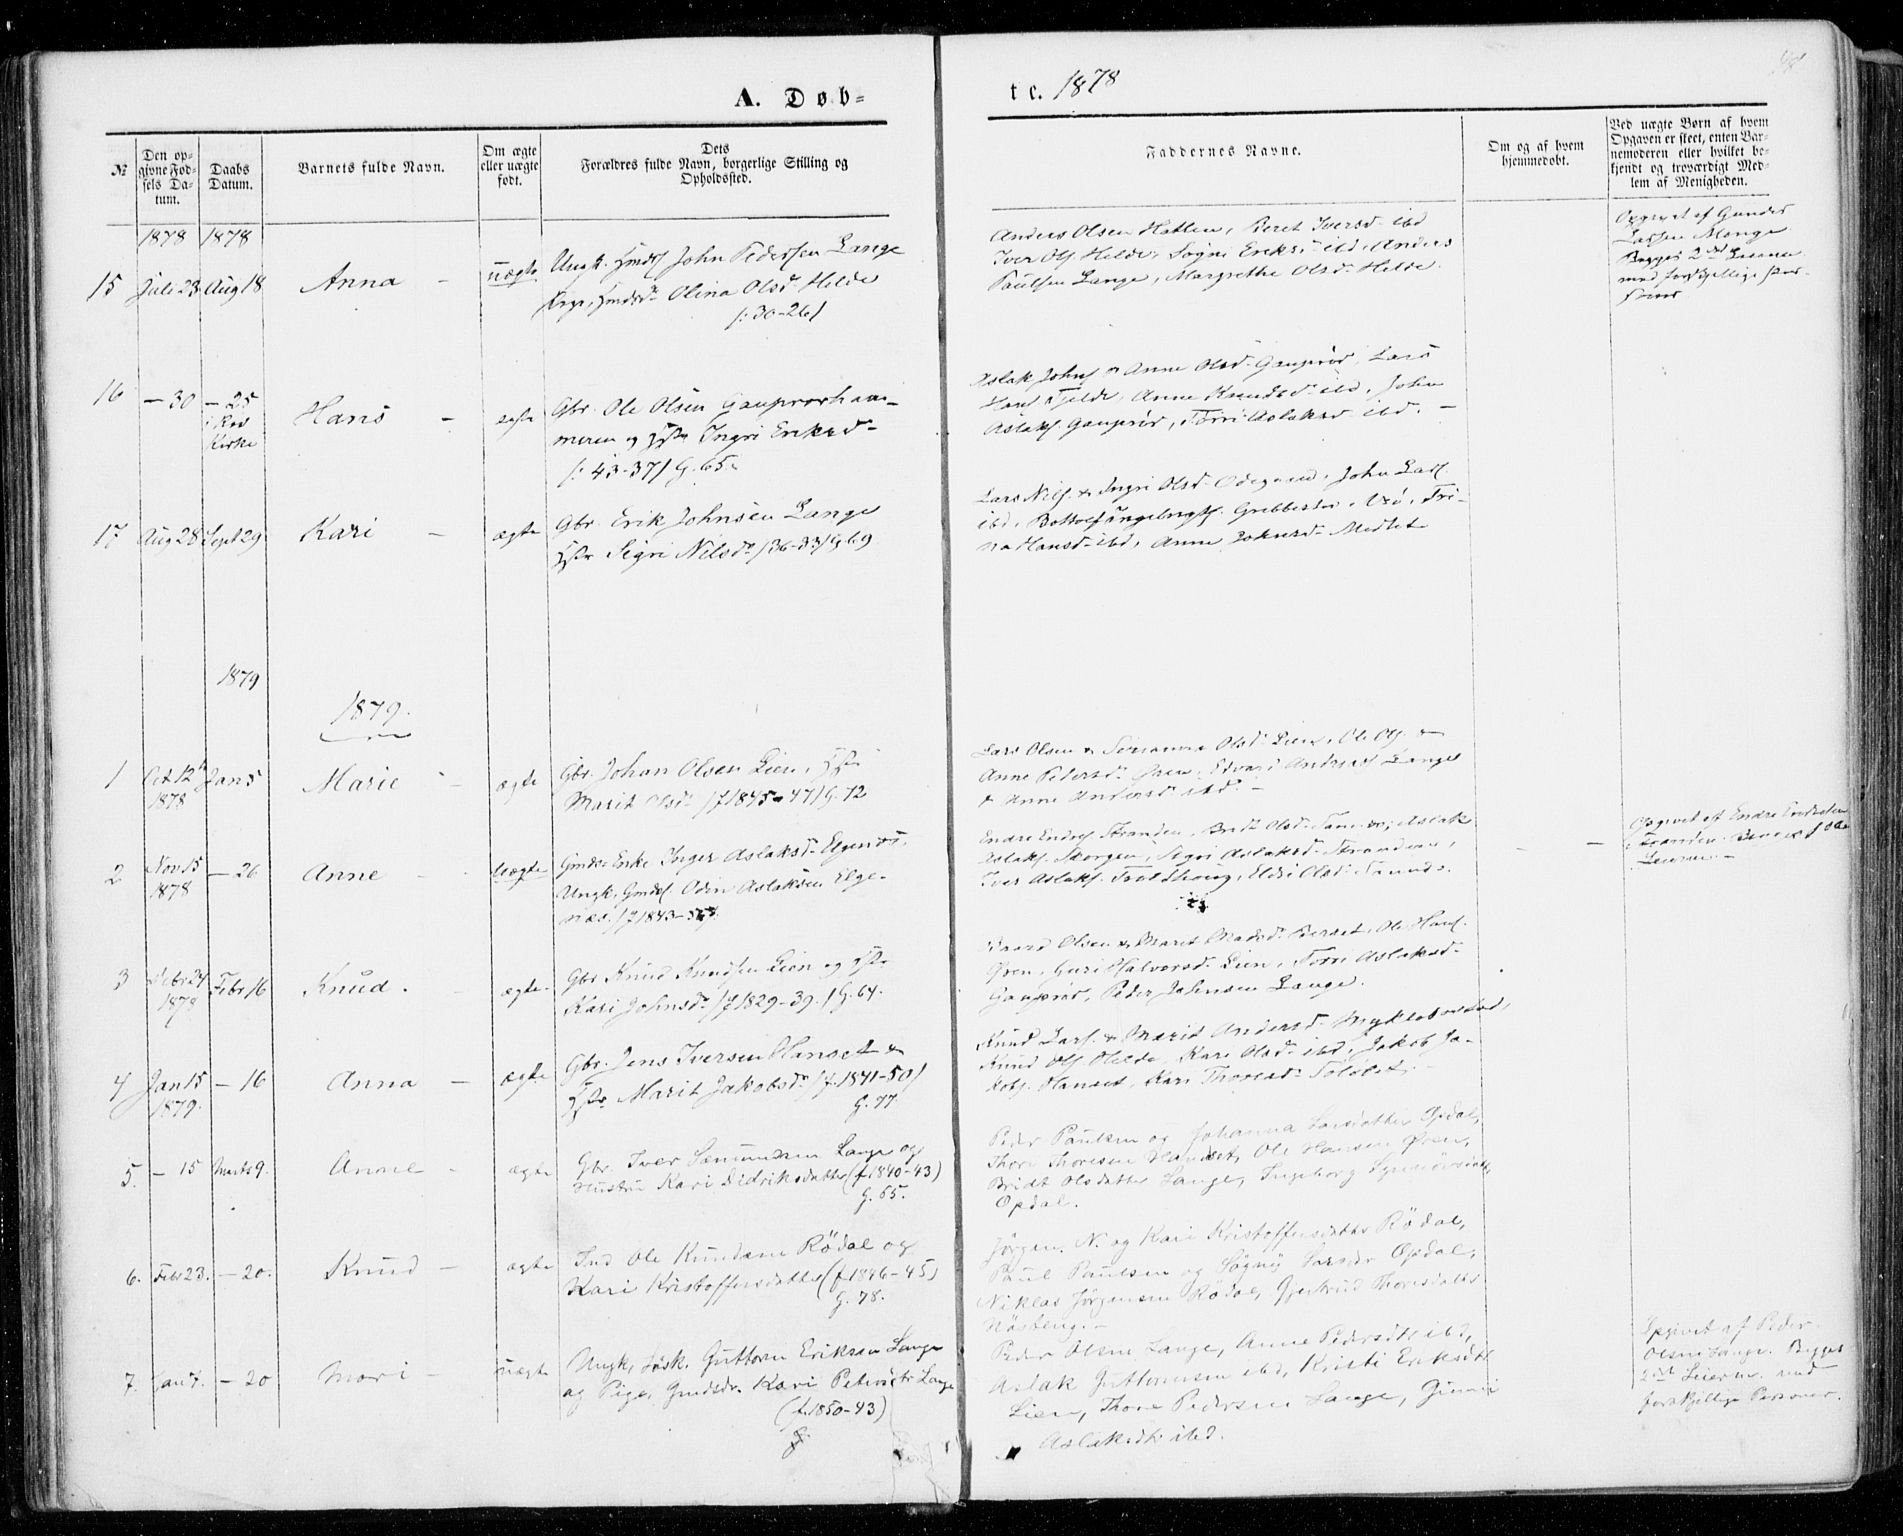 A. Døb-
te. 1878
№
Den op-
givne Fød-
sels Da-
tum.
Daabs
Datum.
Barnets fulde Navn.
Om ægte
eller uægte
født.
Dets
Forældres fulde Navn, borgerlige Stilling og
Opholdssted.
Faddernes Navne.
Om og af hvem
hjemmedøbt.
Ved uægte Børn af hvem
Opgaven er skeet, enten Bar-
nemoderen eller hvilket be-
kjendt og troværdigt Med-
lem af Menigheden.
1878 1878
15 Juli 23 Aug 18 Anna - uægte
Ungk. Gmds John Pedersen Lange
Pige, Gmdsd. Olina Olsd Helde
/: 30-26/
Anders Olsen Hatlen, Beret Iversd ibd
Iver Ols. Helde, Søgni Eriksd ibd, Anders
Paulsen Lange, Margrethe Olsd. Helde.
Opgivet af Gunder
Larsen Monge
Begges 2det Leierm.
med forskjellige Per-
soner
16 - 30 - 25
i Rød
Kirke
Hans - ægte
Gbr. Ole Olsen Gauprørham-
meren og Hstr Ingri Eriksd-
/: 43-37/ G. 65.
Aslak Johns & Anne Olsd. Gauprør, Lars
Hans Fjelde, Anne Knudsd. ibd, John
Aslaks. Gauprør, Torri Aslaksd ibd. -
17 Aug 28 Sept 29 Kari - ægte
Gbr. Erik Johnsen Lange
Hstr Sigri Nilsd. /36-33/ G 69
Lars Nils. & Ingri Olsd. Ødegaard, John Lars.
ibd, Bottolf Ingebrigts. Gribbestad,
na Hansd- ibd, Anne Johnsd- Medlet
1879
1879.
1 Oct 12te
1878
Jan 5 Marie - ægte
Gbr. Johan Olsen Lien, Hst.
Marit Olsd. /f 1845-47/ G. 72
Lars Olsen & Olsd. Lien, Ole Ols. &
Anne Pedersd. Øren, Edvard Anders Lange
& Anne Andersd. ibd. -
2 Nov 15
1878
- 26 Anne - Uægte
Gmds. Enke Inger Aslaksd. Elgenæs,
Ungk. Gmds. Odin Aslaksen Elge-
næs. /f 1843-
Endre Endres Stranden, Bridt Olsd. Aslak
Aslaks. Skorgen, Sigri Aslaksd. Stranden,
Iver Aslaks. Eldri Olsd.
Opgivet af Endre Endresen
Stranden. Begges
Leierm. -
3 Febr 24
1879
Febr 16 Knud. - ægte.
Gbr. Knud Knudsen Lien og Hstr
Kari Johnsd. /f 1829-39./ G. 64.
Olsen & Marit Madsd. Berset, Ole Hans.
Øren, Guri Halvorsd. Lien, Torri Aslaksd.
Gauprør, Peder Johnsen Lange.
4 Jan 15
1879.
- 16 Anna - ægte
Gbr. Jens Iversen Hanset &
Hstr. Marit Jakobsd. /f. 1841-50/
G. 77
Knud Lars. & Marit Andersd. Myklebostad,
Knud Ols Helde, Kari Olsd. ibd, Jakob Ja-
kobs. Hanset, Kari Thoresd.
5. - 15 Marts 9. Anne - ægte
Gbr. Iver Sæmundsen Lange og
Hustru Kari Didriksdatter (f. 1840-43)
G. 65.
Peder Paulsen og Johanna Larsdatter Opdal,
Thore Thoresen Hanset, Ole Hansen Øren,
Bridt Olsdatter Lange, Ingeborg
Opdal.
6. Febr 23. - 20. Knud - ægte
Ind Ole Knudsen Rödal og
Kari Kristoffersdatter (f. 1846-45)
G. 78.
Jørgen N. og Kari Kristoffersdatter Rödal,
Paul Paulsen og Søgny Larsdr Opdal,
Niklas Jørgensen Rödal, Gjertrud Thoresdatter
7. Jan 7. - 20 Mari - uægte
Ungk. Insk. Guttorm Eriksen Lange
og Pige, Gmdsdr. Kari Petersdtr Lange
(f. 1850-43)
Peder Olsen Lange, Anne Pedersdtr ibd,
Aslak Guttormsen ibd, Kristi Eriksdtr
Lien, Thore Pedersen Lange,
Aslaksdtr ibd.
Opgivet af Peder
Olsen Lange. Begges
2det Leierm. med
forskjellige Personer.